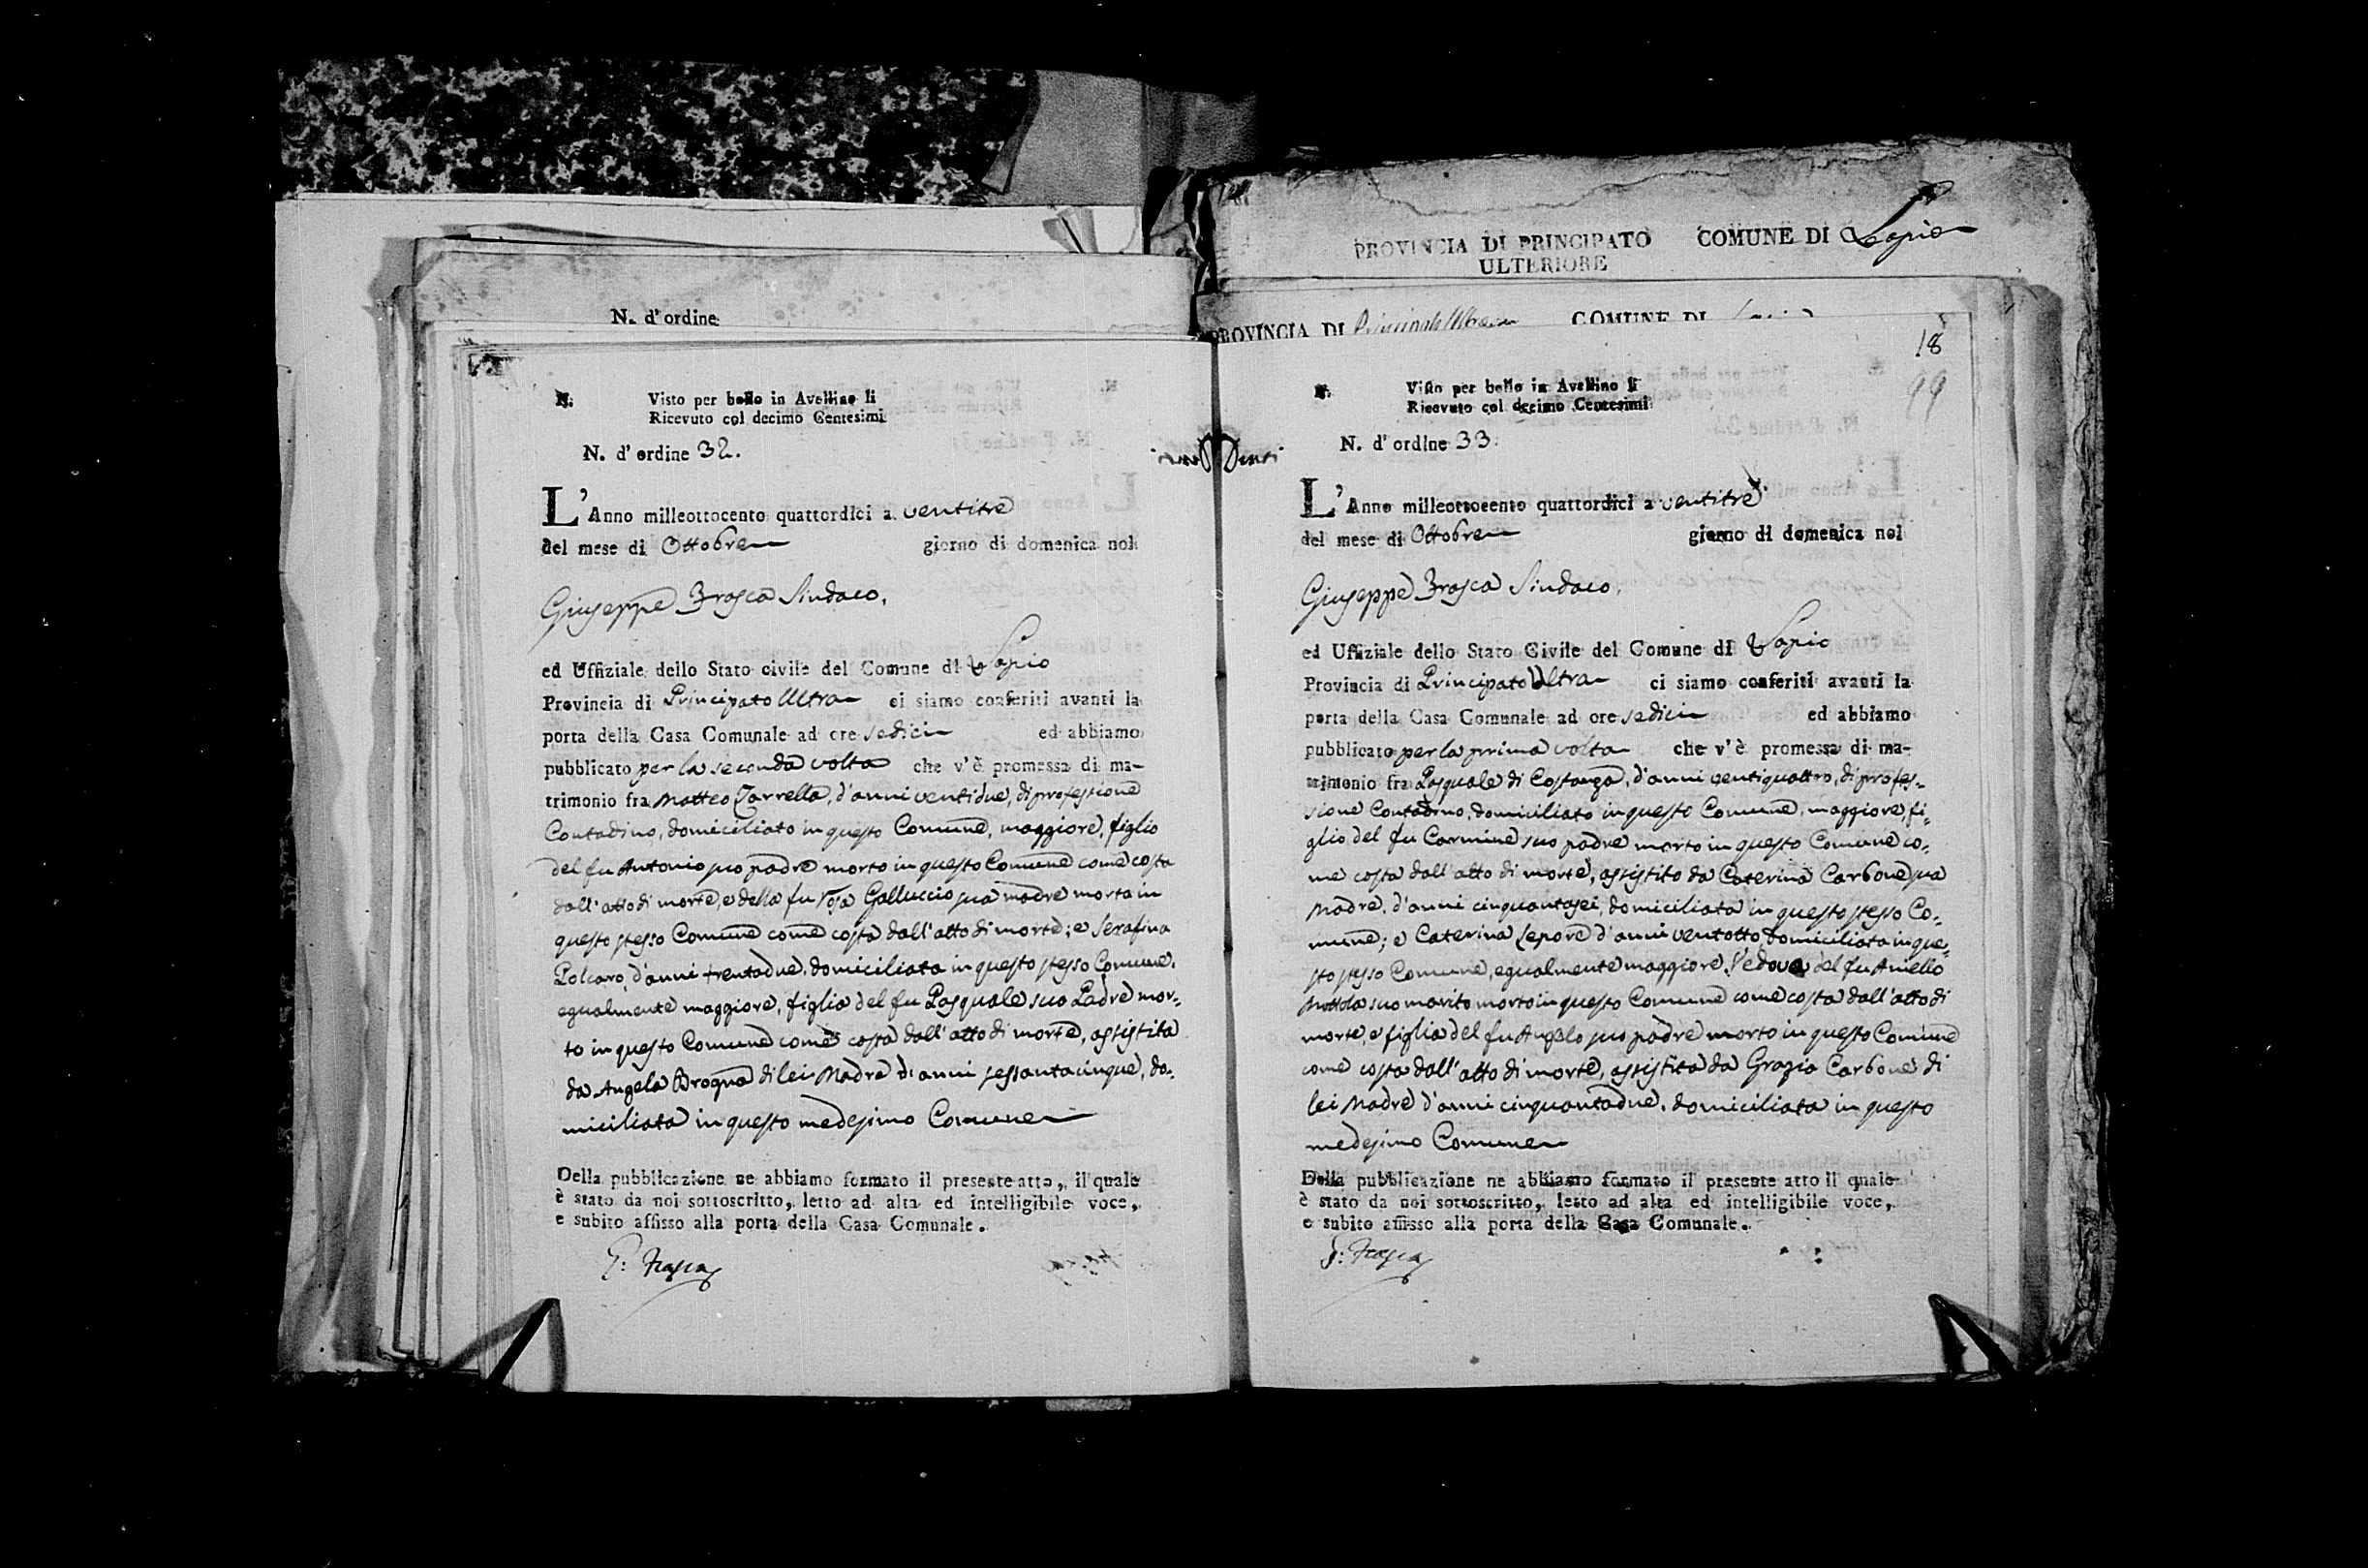 N. d' ordine
N. Visto per bollo in Avellino li
Ricevuto col decimo Centesimi
N. d' ordine 32.
L' Anno milleottocento quattordici a ventitre
del mese di Ottobre giorno di domenica noi
Giuseppe Frasca Sindaco,
ed Uffiziale dello Stato civile del Comune di Lapio
Provincia di Principato Ultra ci siamo conferiti avanti la
porta della Casa Comunale ad ore sedici ed abbiamo
pubblicato per la seconda volta che v' è promessa di ma-
trimonio fra Matteo Carrella, d'anni ventidue, di professione
Contadino, domiciliato in questo Comune, maggiore, figlio
del fu Antonio suo padre morto in questo Comune come costa
dall' atto di morte, e della fu Rosa Galluccio sua madre morta in
questo stesso Comune come costa dall' atto di morte; e Serafina
Polcaro, d'anni trentadue, domiciliata in questo stesso Comune,
egualmente maggiore, figlia del fu Pasquale suo Padre mor-
to in questo Comune come costa dall' atto di morte, assistita
da Angela Brogna di lei Madre d'anni sessantacinque, do-
miciliata in questo medesimo Comune
Della pubblicazione ne abbiamo formato il presente atto, il quale
è stato da noi sottoscritto, letto ad alta ed intelligibile voce,
e subito affisso alla porta della Casa Comunale.
G: Frasca
PROVINCIA DI PRINCIPATO COMUNE DI Lapio
ULTERIORE
PROVINCIA DI Principato Ultra COMUNE DI
18
99
N. Visto per bollo in Avellino li
Ricevuto col decimo Centesimi
N. d' ordine 33.
L' Anno milleottocento quattordici a ventitre
del mese di Ottobre giorno di domenica noi
Giuseppe Frasca Sindaco,
ed Uffiziale dello Stato Civile del Comune di Lapio
Provincia di Principato Ultra ci siamo conferiti avanti la
porta della Casa Comunale ad ore sedici ed abbiamo
pubblicato per la prima volta che v' è promessa di ma-
trimonio fra Pasquale di Costanza, d'anni ventiquattro, di profes-
sione Contadino, domiciliato in questo Comune, maggiore, fi-
glio del fu Carmine suo padre morto in questo Comune co-
me costa dall' atto di morte, assistito da Caterina Carbone sua
Madre, d'anni cinquantasei, domiciliata in questo stesso Co-
mune; e Caterina Lepore d'anni ventotto domiciliata in que-
sto stesso Comune, egualmente maggiore, Vedova del fu Aniello
suo marito morto in questo Comune come costa dall' atto di
morte, e figlia del fu Angelo suo padre morto in questo Comune
come costa dall' atto di morte, assistita da Grazia Carbone di
lei Madre d'anni cinquantadue, domiciliata in questo
medesimo Comune
Della pubblicazione ne abbiamo formato il presente atto il quale
è stato da noi sottoscritto, letto ad alta ed intelligibile voce,
e subito affisso alla porta della Casa Comunale.
G: Frasca